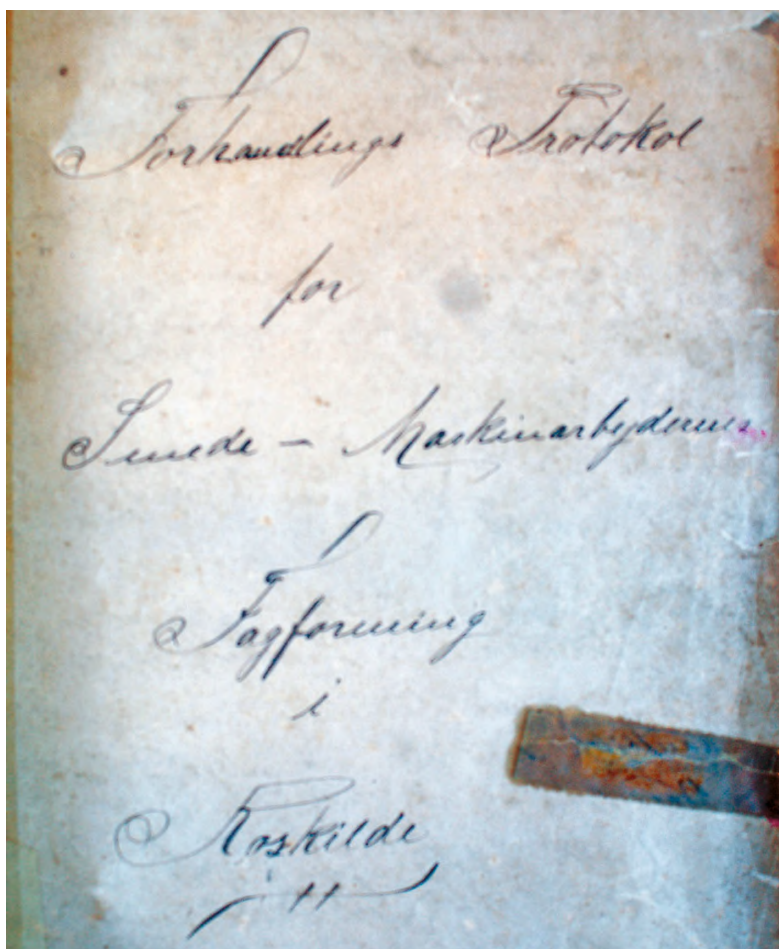 Forhandlings Protokol
for
Smede - Maskinarbejdernes
Fagforening
i
Roskilde